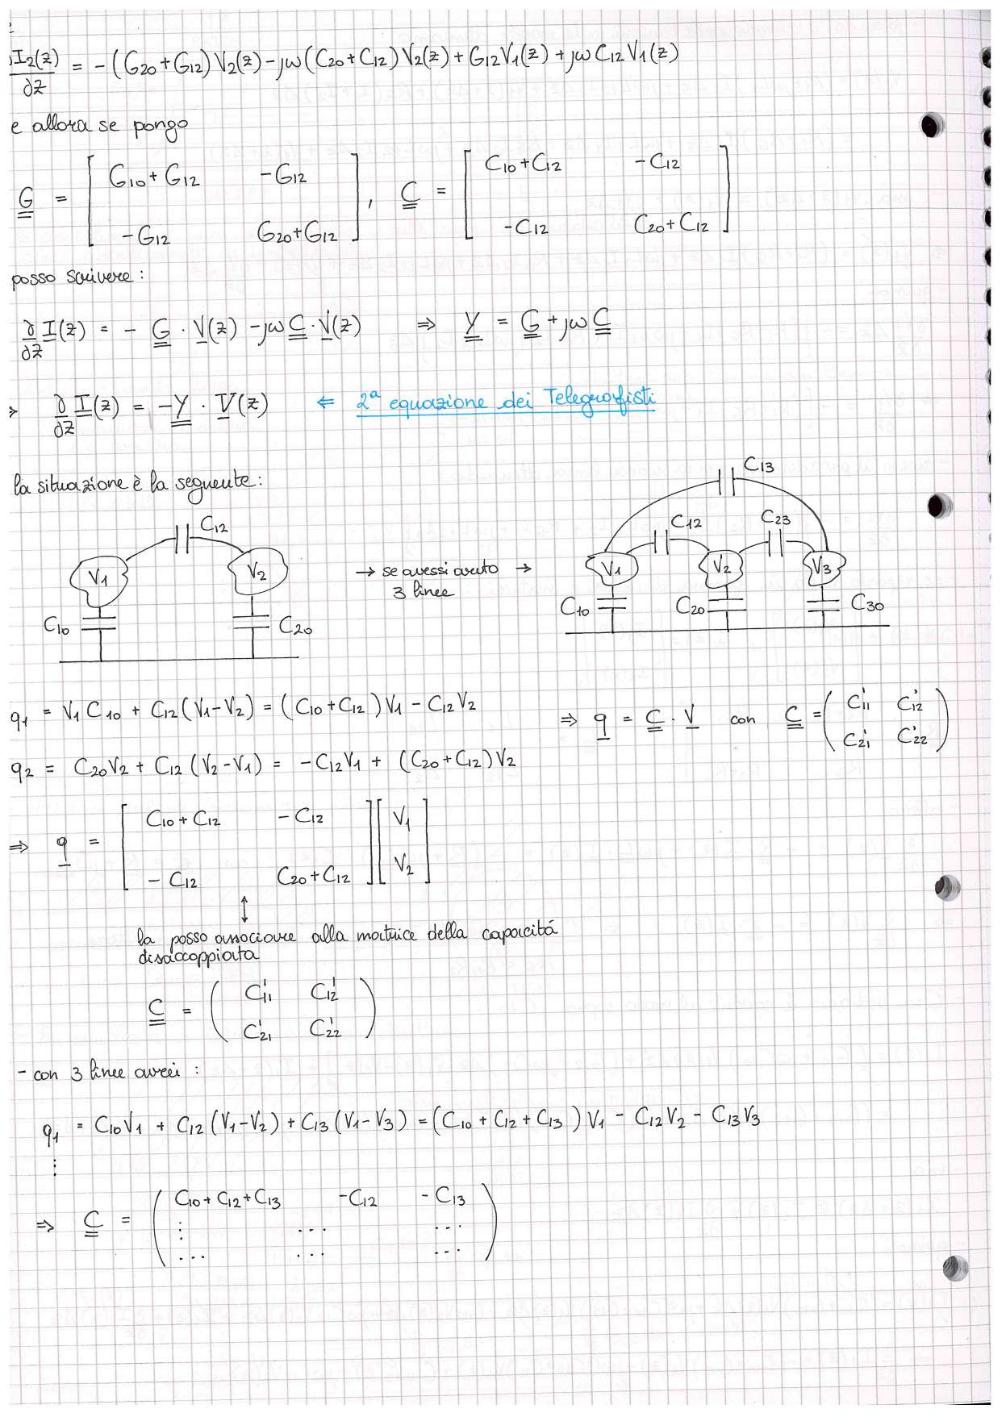 ∂I₂(z)/∂z = -(G₂₀+G₁₂)V₂(z) - jω(C₂₀+C₁₂)V₂(z) + G₁₂V₁(z) + jωC₁₂V₁(z)
e allora se pongo
G = [ G₁₀+G₁₂  -G₁₂ ; -G₁₂  G₂₀+G₁₂ ] , C = [ C₁₀+C₁₂  -C₁₂ ; -C₁₂  C₂₀+C₁₂ ]
posso scrivere :
∂/∂z I(z) = - G · V(z) - jω C · V(z) ⇒ Y = G + jω C
∂/∂z I(z) = - Y · V(z) ⇐ 2ª equazione dei Telegrafisti
la situazione è la seguente :
C₁₂
V₁ V₂
C₁₀ C₂₀
→ se avessi avuto →
3 linee
C₁₃
C₁₂ C₂₃
V₁ V₂ V₃
C₁₀ C₂₀ C₃₀
q₁ = V₁C₁₀ + C₁₂(V₁-V₂) = (C₁₀+C₁₂)V₁ - C₁₂V₂
⇒ q = C · V con C = ( C'₁₁ C'₁₂ ; C'₂₁ C'₂₂ )
q₂ = C₂₀V₂ + C₁₂(V₂-V₁) = -C₁₂V₁ + (C₂₀+C₁₂)V₂
⇒ q = [ C₁₀+C₁₂  -C₁₂ ; -C₁₂  C₂₀+C₁₂ ] [ V₁ ; V₂ ]
↕
la posso associare alla matrice della capacitá
disaccoppiata
C = ( C'₁₁ C'₁₂ ; C'₂₁ C'₂₂ )
- con 3 linee avrei :
q₁ = C₁₀V₁ + C₁₂(V₁-V₂) + C₁₃(V₁-V₃) = (C₁₀ + C₁₂ + C₁₃)V₁ - C₁₂V₂ - C₁₃V₃
⋮
⇒ C = ( C₁₀+C₁₂+C₁₃  -C₁₂  -C₁₃ ; ⋮ ... ... ; ... ... ... )